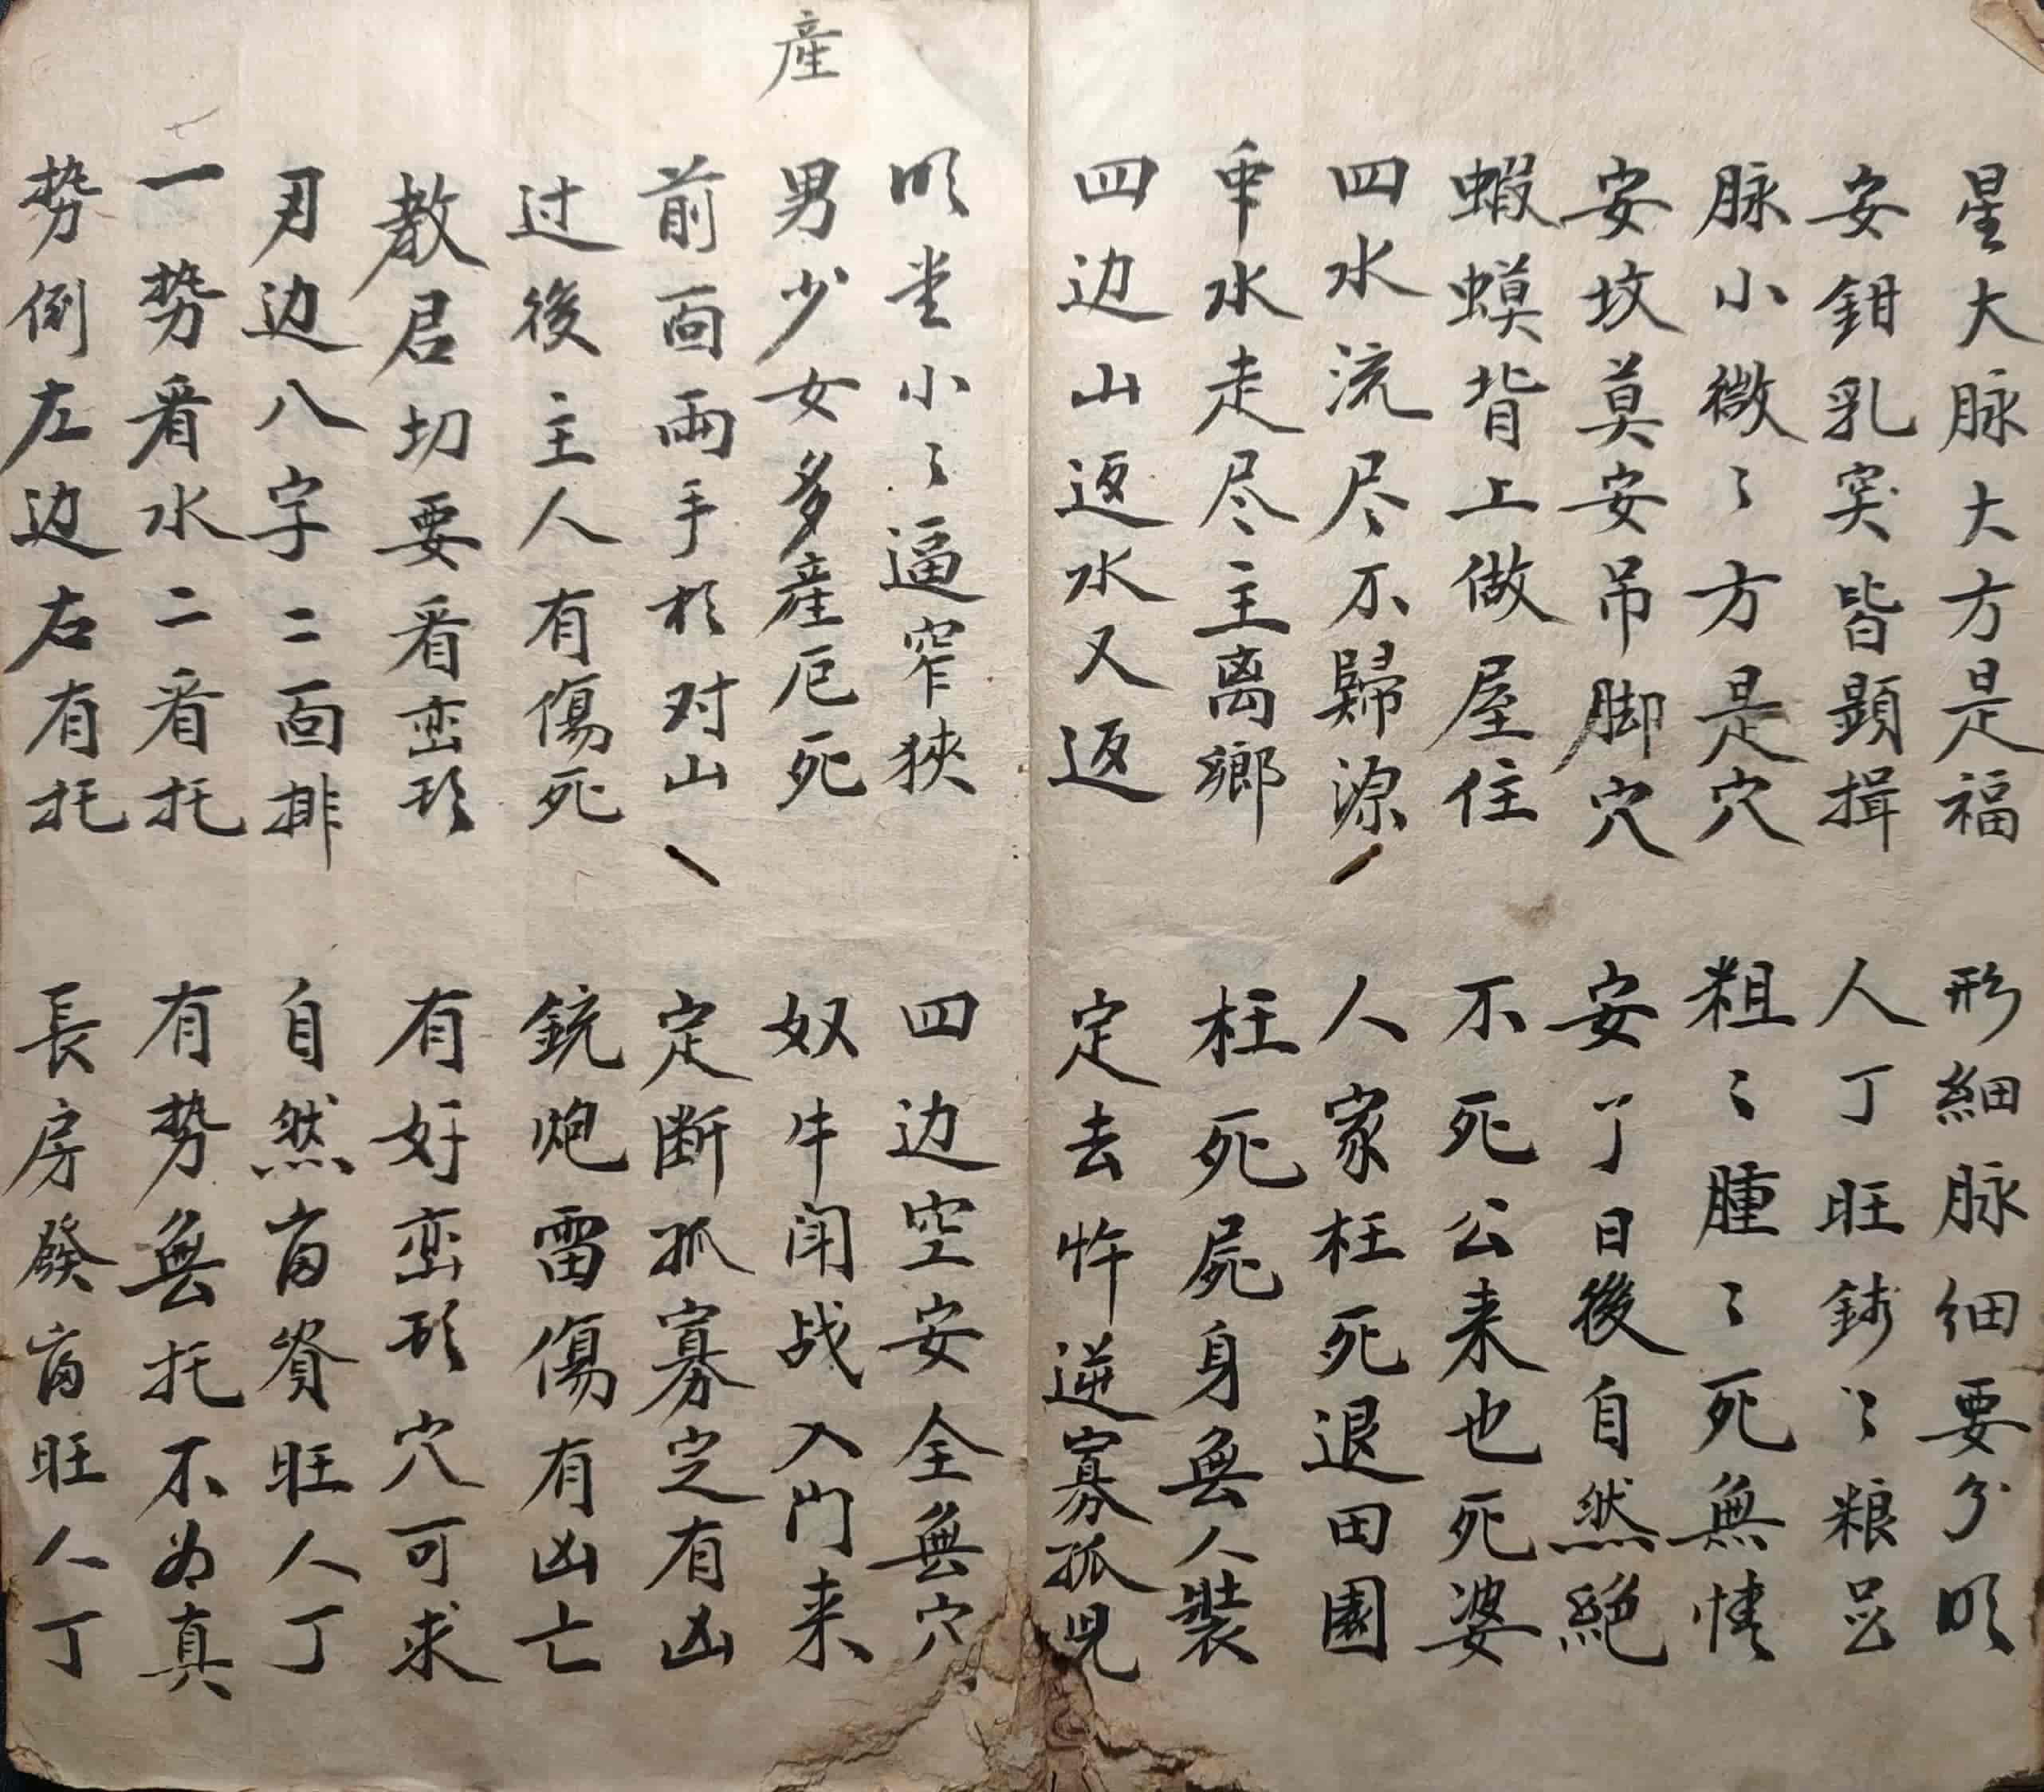 星大脉大方是福 形細脉細要分明
安鉗乳突皆顕揖 人丁旺錢〻粮
脉小微〻方是穴 粗〻腫〻死無情
安坟莫安吊脚穴 安了日後自然絕
蝦蟆背上做屋住 不死公来也死婆
四水流尽不歸源 人家枉死退田園
水走尽主离鄉 枉死屍身無人裝
四边山返水又返 定去忤逆寡孤児
産
明堂小〻逼窄狹 四边空安全無穴
男少女多産厄死 奴牛闹战入门来
前面兩手於对山 定断孤寡定有凶
过後主人有傷死 銃炮雷傷有凶亡
教君切要看峦形 有好峦形穴可求
刃边八字二面排 自然富資旺人丁
一势看水二看托 有势無托不为真
势倒左边右有托 長房發富旺人丁